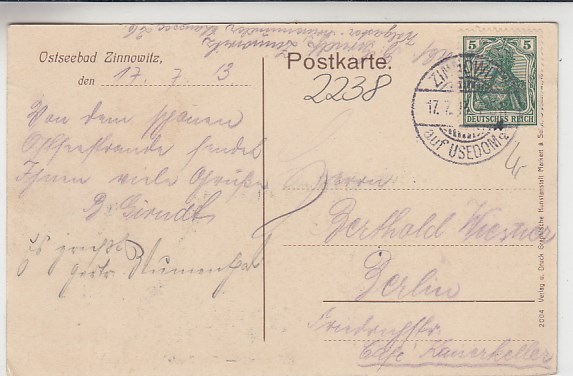 Ostseebad Zinnowitz,
den 17. 7. 13
Von dem schönen
Ostseestrande sendet
Ihnen viele Grüße
B. Girndt
Es grüßt
Postkarte.
2238
5
DEUTSCHES REICH
ZINNOWITZ
17. 7.
auf USEDOM
Herrn
Berthold Wiesner
Berlin
Friedrichstr.
Café Kaiserkeller
2004 Verlag u. Druck Graphische Kunstanstalt Markert &